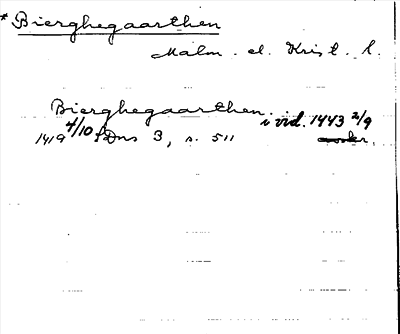 * Bierghegaarthen
Malm. el. Krist. l.
Bierghegaarthen i vid. 1443 2/9
1419 4/10 SDns 3, s. 511